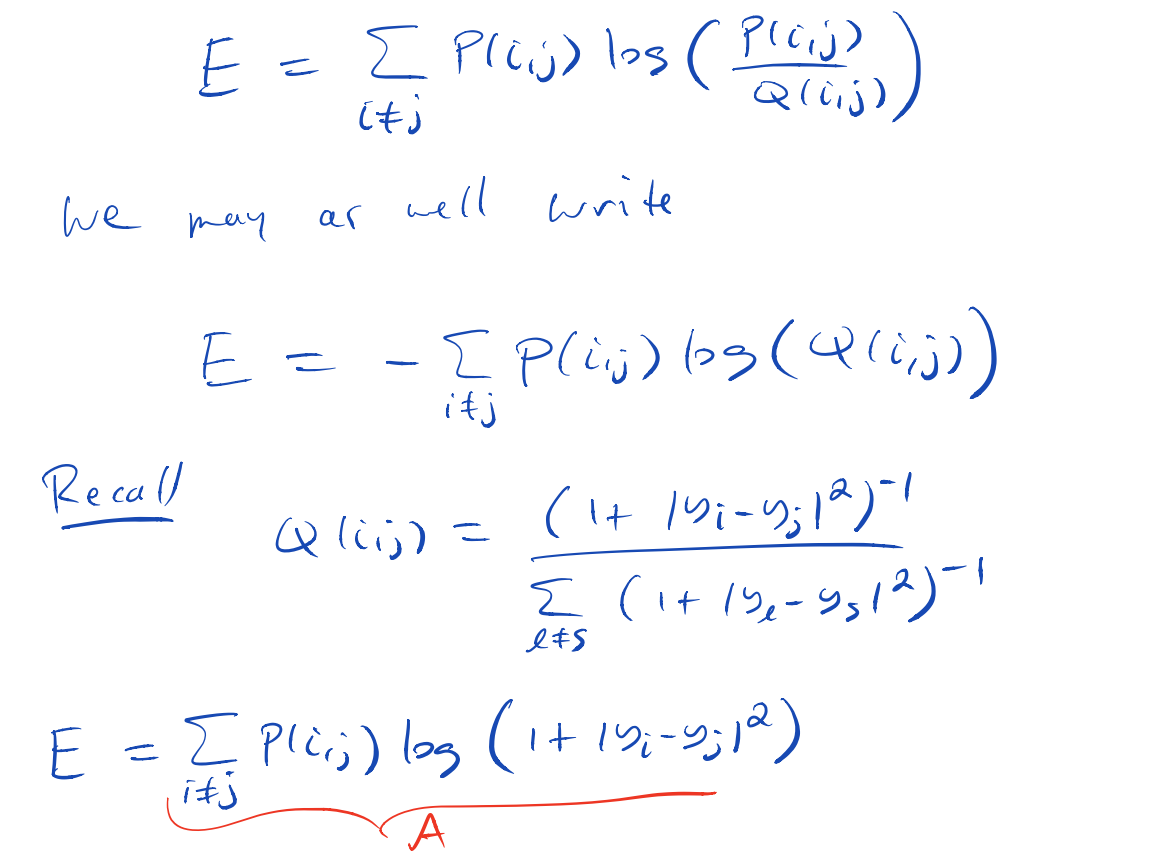 E = ∑_{i≠j} P(i,j) log(P(i,j)/Q(i,j))
we may as well write
E = - ∑_{i≠j} P(i,j) log(Q(i,j))
Recall
Q(i,j) = (1+ |y_i - y_j|^2)^{-1} / ∑_{ℓ≠s} (1+ |y_ℓ - y_s|^2)^{-1}
E = ∑_{i≠j} P(i,j) log(1+ |y_i - y_j|^2)
A